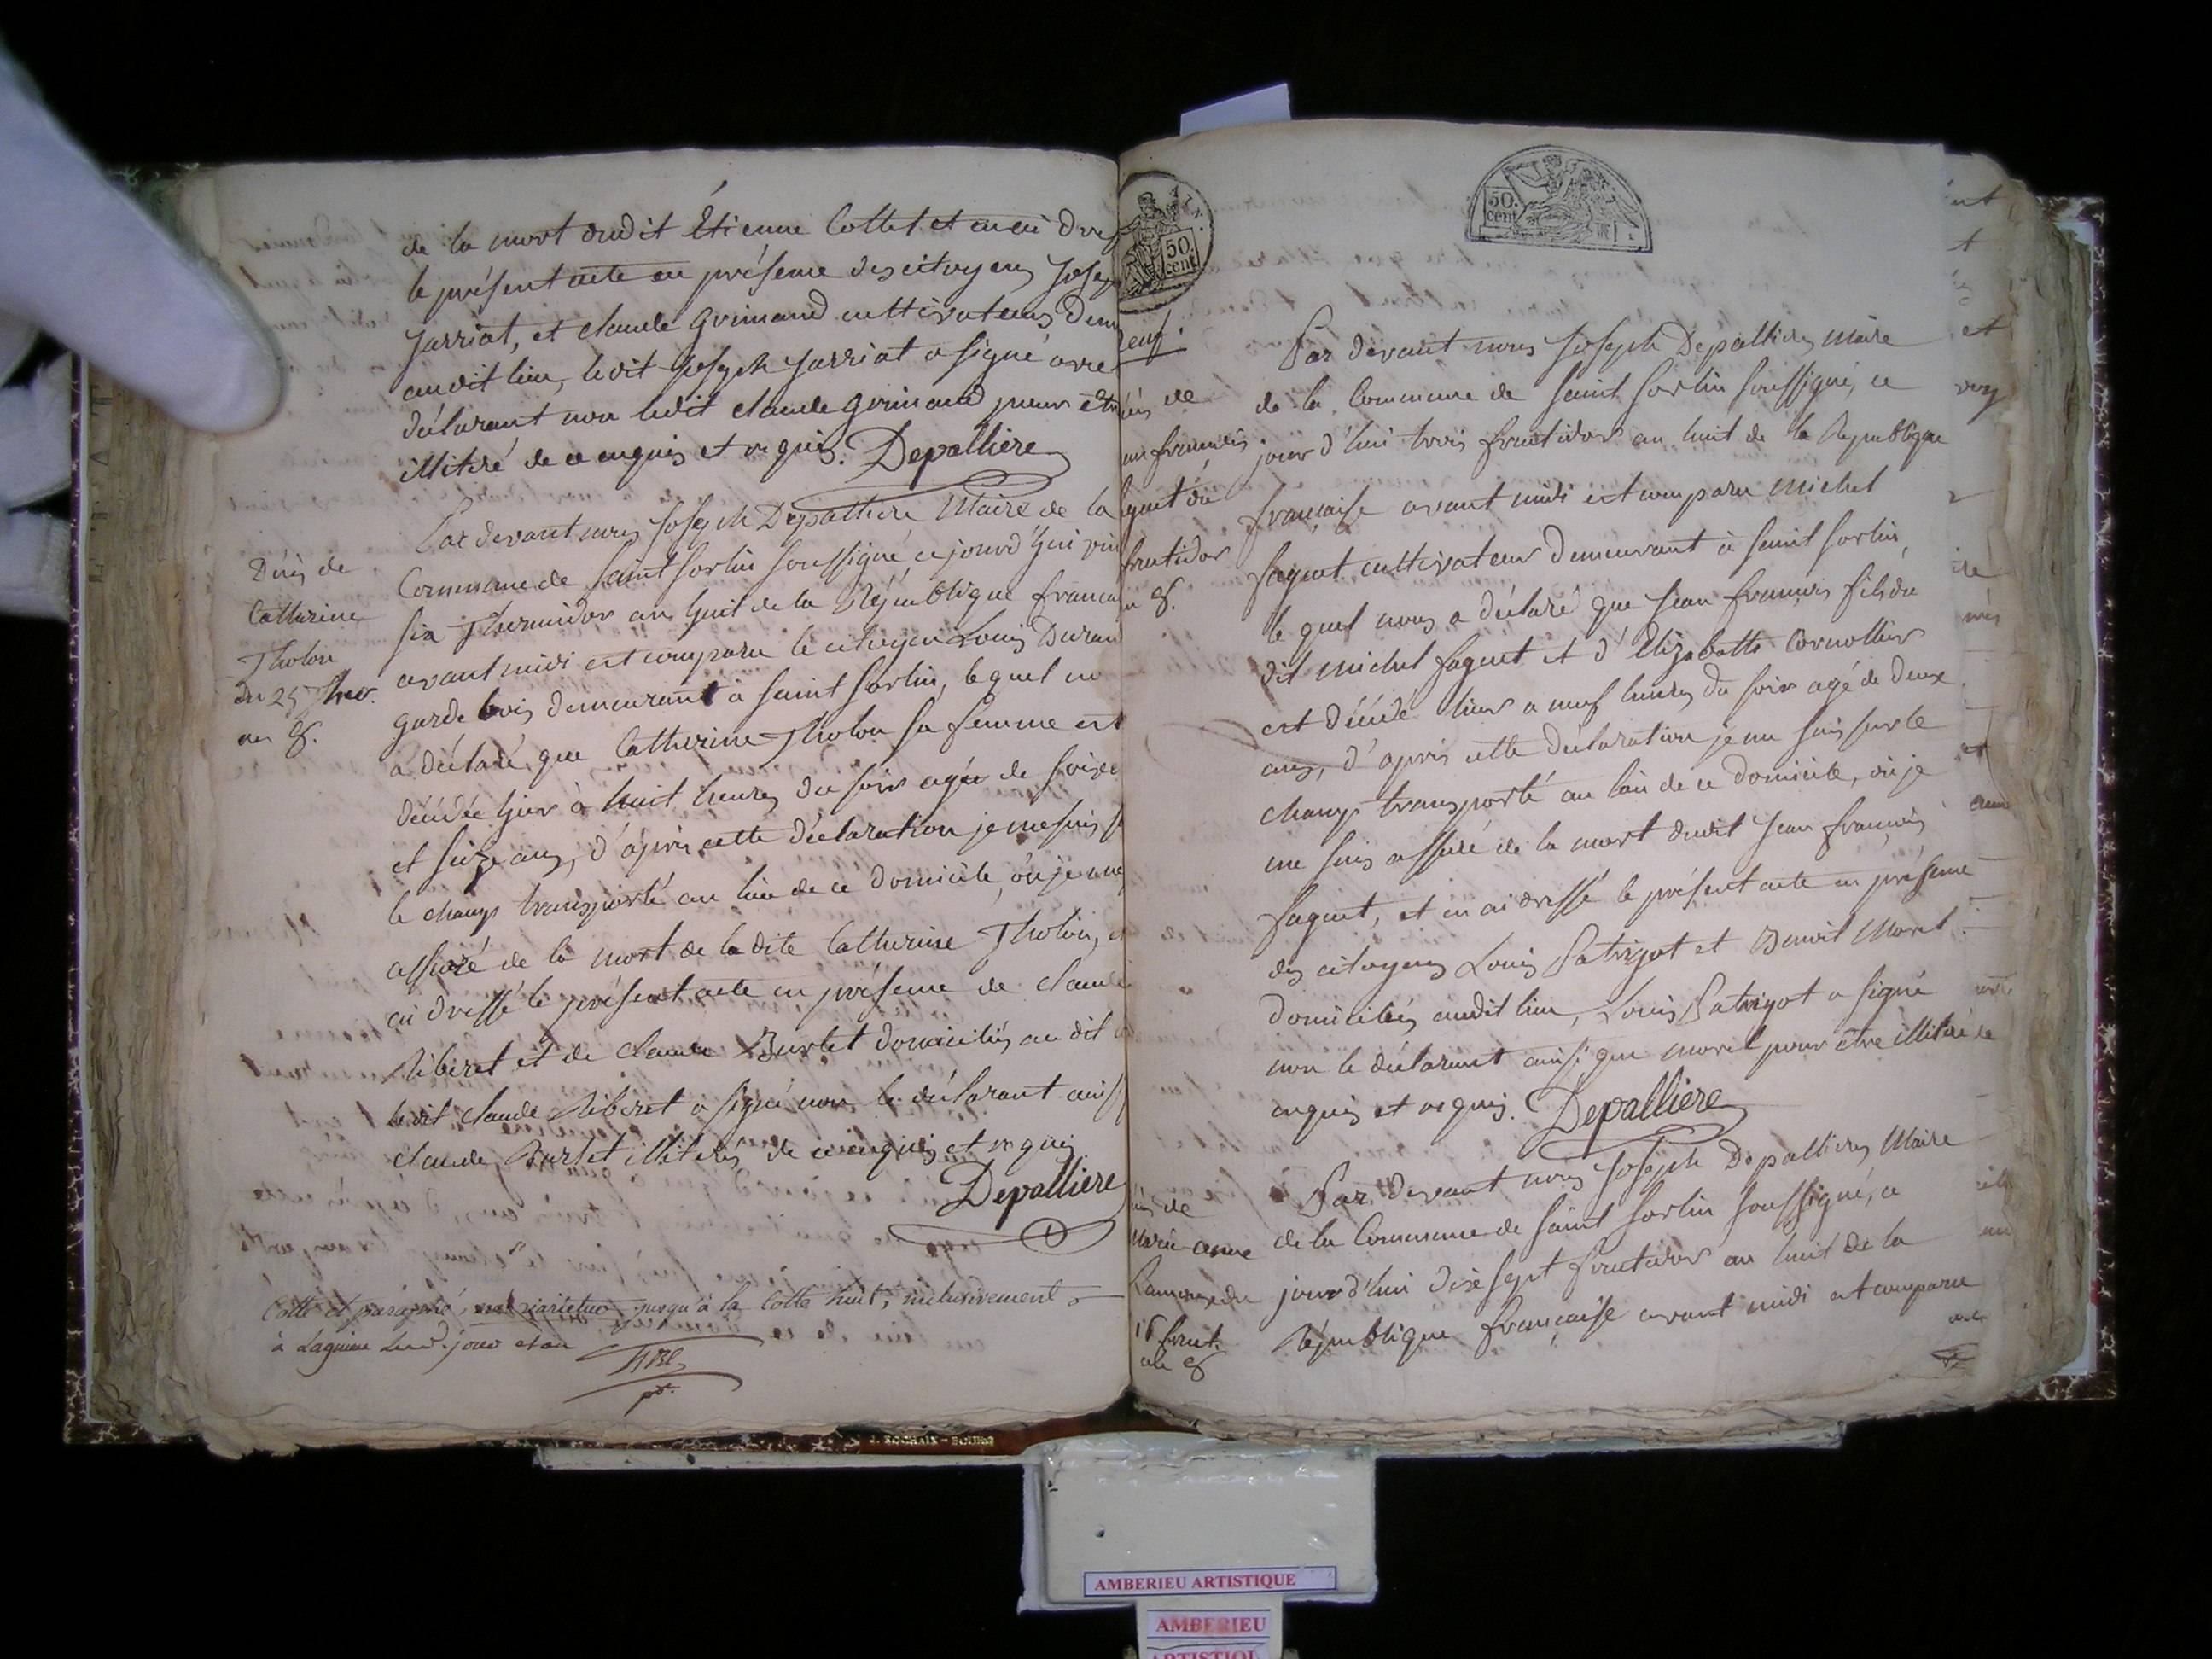 de la mort dudit Étienne Collet et en ai dres
le présent acte en présence des citoyens Josep
Jarriat, et claude Grimaud cultivateurs dem
audit lieu, ledit Joseph Jarriat a signé avec
déclarant non ledit claude Grimaud pour etre
illitéré de ce enquis et requis. Depalliere
Décès de
Catherine
Tholon
du 25 Ther.
an 8.
Par devant nous Joseph Depalliere Maire de la
Commune de Saint Sorlin soussigné, ce jourd'hui vin
six Thermidor an huit de la République francai
avant midi est comparu le citoyen Louis Duran
garde bois demeurant à Saint Sorlin, lequel no
a déclaré que Catherine Tholon sa femme est
décédée hier à huit heures du soir agée de soixe
et seize ans, d'après cette déclaration je me suis s
le champ transporté au lieu de ce domicile, où je me
assuré de la mort de la dite Catherine Tholon, e
ai dressé le présent acte en présence de claude
Riberet et de claude Burlet domiciliés au dit
ledit claude Riberet a signé non le déclarant ainsi
claude Burlet illiterés de ce enquis et requis
Depalliere
Cotté et paraphé, jusqu'à la Cotte huit, inclusivement
à Lagnieu jour et an
50. cent
50. cent
neuf.
décès de
jean francois
faguet du
fructidor
an 8.
Par devant nous Joseph Depalliere, maire
de la Commune de Saint Sorlin soussigné, ce
jour d'hui trois fructidor an huit de la République
française avant midi est comparu michel
faguet cultivateur demeurant à saint sorlin,
le quel nous a déclaré que jean francois fils du
dit michel faguet et d'Elizabeth Cornollier
est décédé hier a neuf heures du soir agé de deux
ans, d'après cette déclaration je me suis sur le
champ transporté au lieu de ce domicile, où je
me suis assuré de la mort dudit jean francois
faguet, et en ai dressé le présent acte en présence
des citoyens Louis Patrigot et Benoit Morel
domiciliés audit lieu, Louis Patrigot a signé
non le déclarant ainsi que morel pour être illitéré de
enquis et requis. Depalliere
décès de
Marie anne
du
16 fruct.
an 8
Par devant nous Joseph Depalliere, Maire
de la Commune de Saint Sorlin soussigné, ce
jourd'hui dix sept fructidor an huit de la
République française avant midi est comparu
J. ROCHAIX - BOURG
AMBERIEU ARTISTIQUE
AMBERIEU
ARTISTIQUE